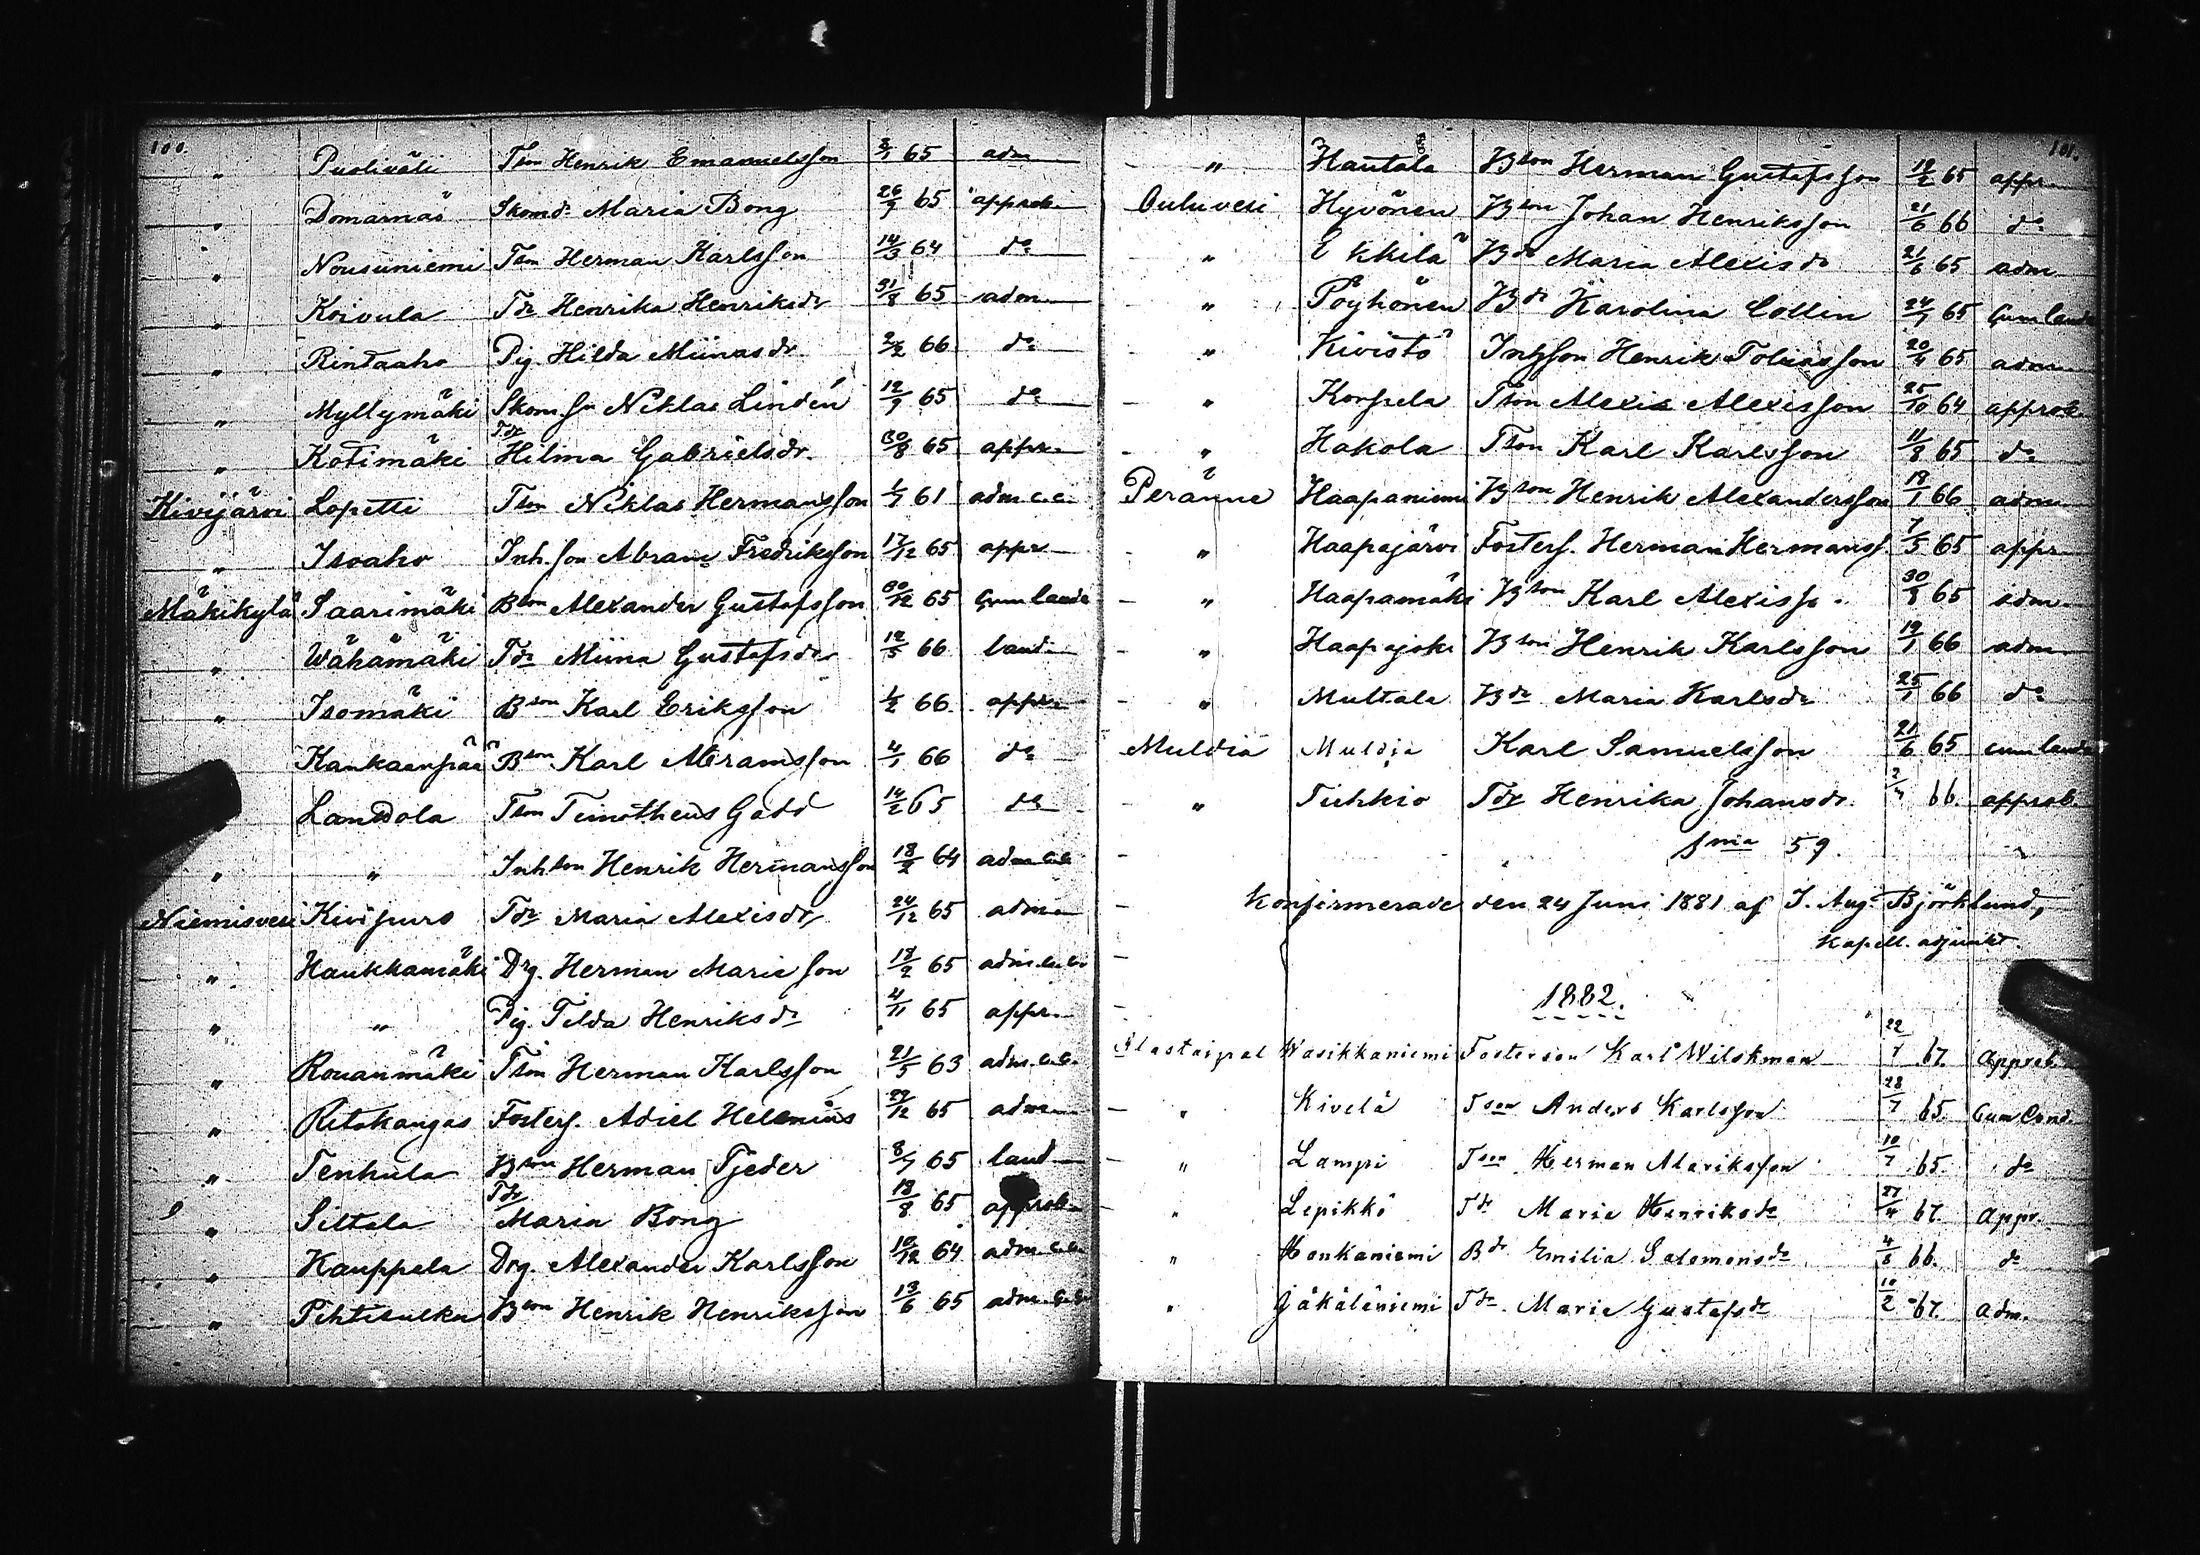 100.
" Puoliväli Tson Henrik Emanuelsson 2/1 65 adm
" Domarnäs Skomd. Maria Bong 26/9 65 approb.
" Nousuniemi Tson Herman Karlsson 14/3 64 do
" Koivula Tdr Henrika Henriksdr 31/8 65 adm
" Rintaaho Pig. Hilda Miinasdr 2/2 66 do
" Myllymäki Skom.sn Niklas Lindén 12/9 65 do
" Kotimäki Tdr Hilma Gabrielsdr. 30/8 65 appr.
Kivijärvi Lopetti Tson Niklas Hermansson 1/7 61 adm.c.c.
" Isoaho Inh.son Abram Fredriksson 17/12 65 appr
Mäkikylä Saarimäki Bson Alexander Gustafsson 30/12 65 Cum laude
" Wähämäki Tdr Miina Gustafsdr 12/5 66 laud.
" Isomäki Bson Karl Eriksson 1/2 66 appr.
" Kankaanpää Bson Karl Abramsson 4/1 66 do
Landola Tson Timotheus Gadd 14/2 65 do
" " Inhson Henrik Hermansson 18/2 64 adm c.c.
Niemisvesi Kivipuro Tdr Maria Alexisdr 24/12 65 adm
" Haukkamäki Drg. Herman Marieson 18/2 65 adm.c.c.
" " Pig. Tilda Henriksdr 4/11 65 appr.
" Rouanmäki Tson Herman Karlsson 21/5 63 adm.c.c.
" Ritokangas Fosters. Adiel Helenius 27/12 65 adm
" Tenhula Bson Herman Tjeder 8/7 65 laud
" Siltala Tdr Maria Bong 18/8 65 approb.
" Kauppela Drg. Alexander Karlsson 10/12 64 adm.c.c.
" Pihtisulku Bson Henrik Henriksson 13/6 65 adm.c.c.
101.
" Hautala Bson Herman Gustafsson 19/2 65 appr.
Ouluvesi Hyvönen Bson Johan Henriksson 21/6 66 do
" Ekkilä Bdr Maria Alexisdr 21/6 65 adm
" Pöyhönen Bdr Karolina Collin 24/7 65 Cum laude
" Kivistö Inhsson Henrik Tobiasson 20/4 65 adm
" Korpela Tson Alexis Alexisson 25/10 64 approb
" Hakola Tson Karl Karlsson 11/8 65 do
Peränne Haapaniemi Bson Henrik Alexandersson 18/1 66 adm
" Haapajärvi Fosters. Herman Hermanss 7/5 65 appr
" Haapamäki Bson Karl Alexiss. 30/8 65 adm.
" Haapajoki Bson Henrik Karlsson 19/1 66 adm
" Multala Bdr Maria Karlsdr 25/1 66 do
Muldia Muldia Karl Samuelsson 21/6 65 cum laude
" Tuhkio Tdr Henrika Johansdr. 66. approb.
Smia 59.
Konfirmerade den 24 Juni 1881 af J. Aug. Björklund,
Kapell. adjunkt.
1882.
Wasikkaniemi Fosterson Karl Wilskman 22/7 67. Approb.
" Kivelä Tson Anders Karlsson 28/7 65. Cum laud.
" Lampi Tson Herman Alariksson 10/7 65. do
" Lepikkö Tdr Maria Henriksdr 27/4 67. Appr.
" Honkaniemi Bdr Emilia Salomonsdr 4/8 66. do
" Jäkäläniemi Tdr Maria Gustafsdr 10/2 67. Adm.